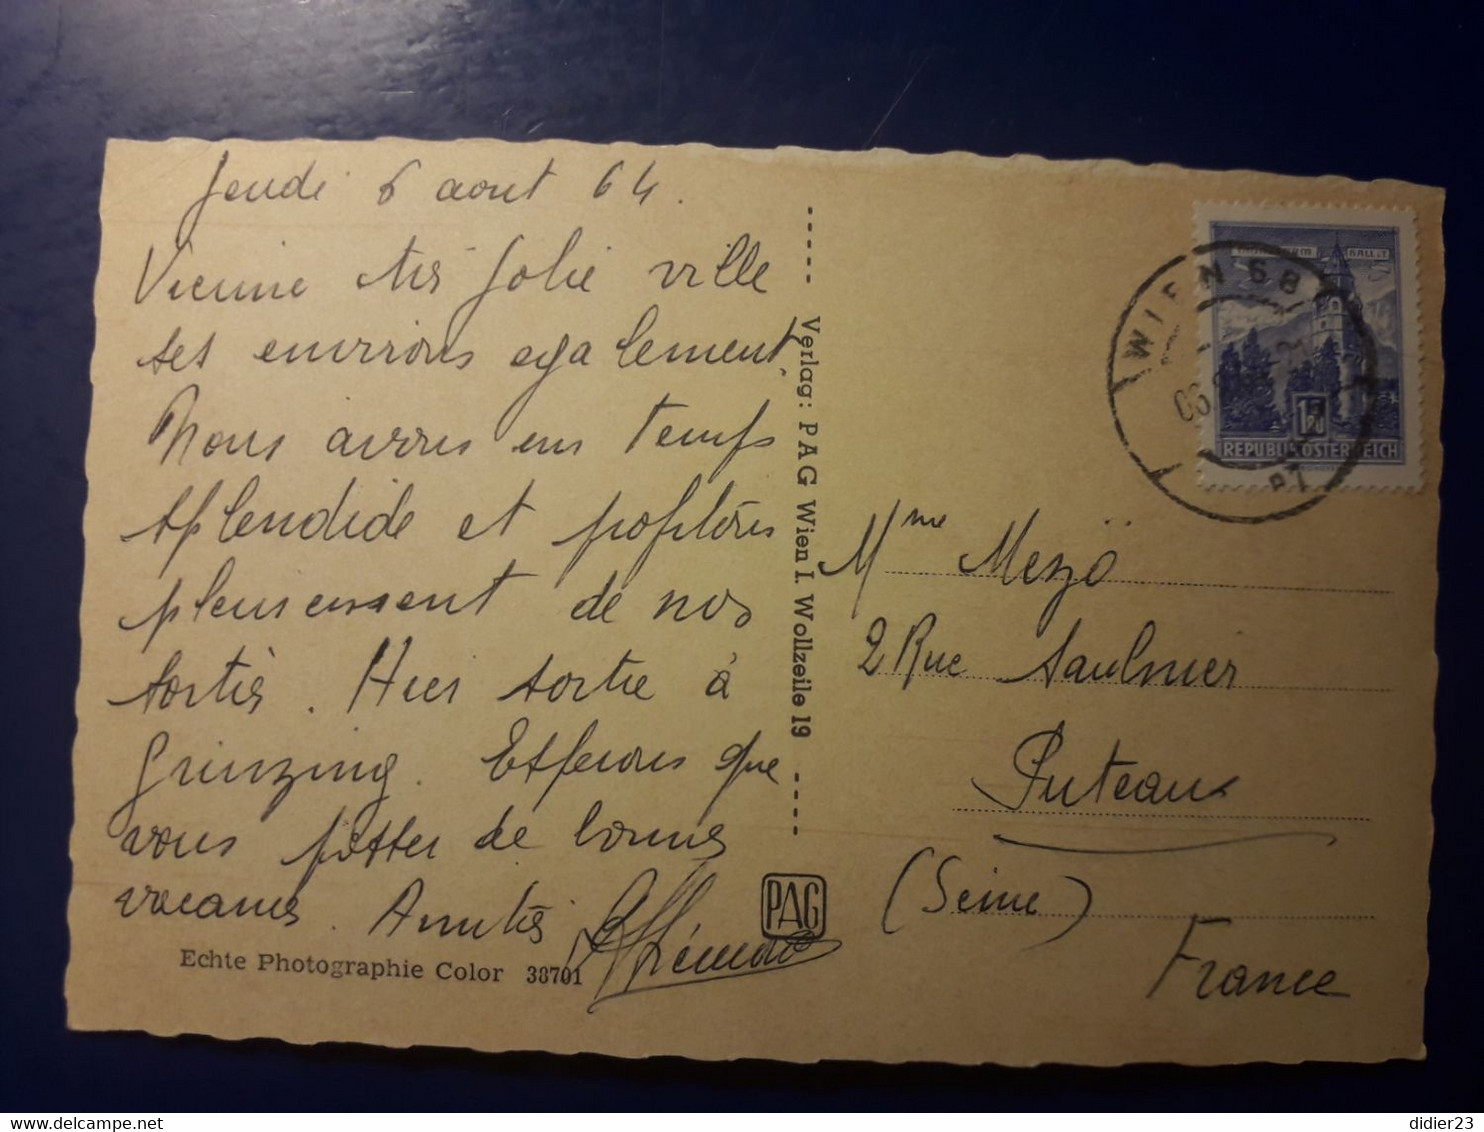 Jeudi 6 aout 64.
Vienne très jolie ville
ses environs egalement.
Nous avons un temps
splendide et profitons
pleinement de nos
sorties. Hier sortie à
Grinzing. Esperons que
vous passez de bonnes
vacances. Amitiés
Echte Photographie Color 38701
Verlag: PAG Wien I. Wollzeile 19
PAG
WIEN 68
REPUBLIK ÖSTERREICH
Mme Mezö
2 Rue Saulnier
Puteaux
(Seine)
France
didier23